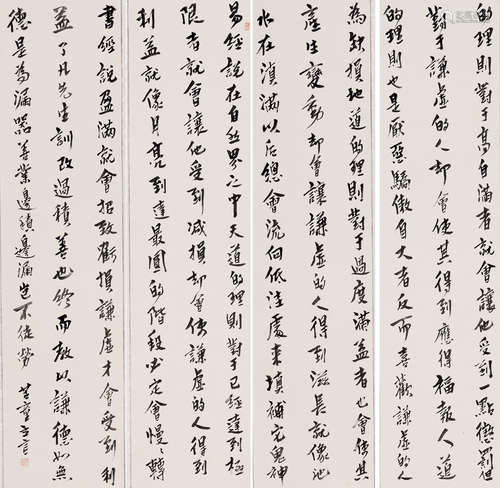 的理則對于高自滿者就會使他受到一點懲罰但
對于謙虛的人却會使其得到應得福報人道
的理則也是厭惡驕傲自大者反而喜歡謙虛的人
為缺損地道的理則對于過度滿盖者也會使其
產生變動却會讓謙虛的人得到滋長就像池
水在滇滿以后總會流向低洼處來填補它鬼神
易經説在自然界之中天道的理則對于已經達到極
限者就會讓他受到减損却會使謙虛的人得到
利益就像月亮到達最圓的階段必定會慢慢轉
書經説盈滿就會招致虧損謙虛才會受到利
益了凡先生訓改過積善也終而教以謙德如無
德是為漏器善業邊積邊漏豈不徒勞